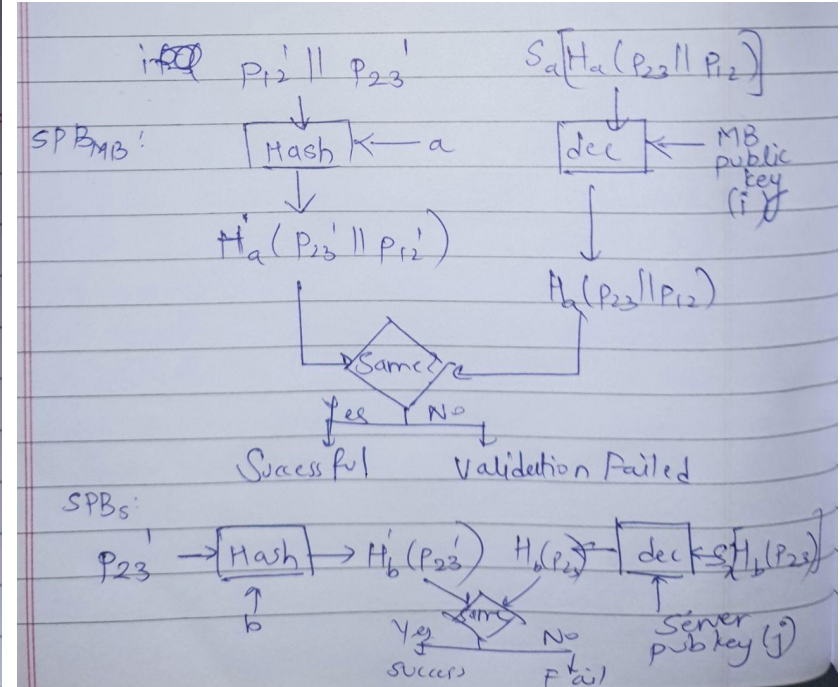 P₁₂' || P₂₃'
Sₐ[Hₐ(P₂₃ || P₁₂)]
SPB_MB:
Hash
a
dec
MB
public
key
(i)
H'ₐ(P₂₃' || P₁₂')
Hₐ(P₂₃||P₁₂)
Same?
Yes
No
Successful
Validation Failed
SPBₛ:
P₂₃'
Hash
H'_b(P₂₃')
H_b(P₂₃)
dec
H_b(P₂₃)
b
Same
Server
pub key (j)
Yes
No
Success
Fail